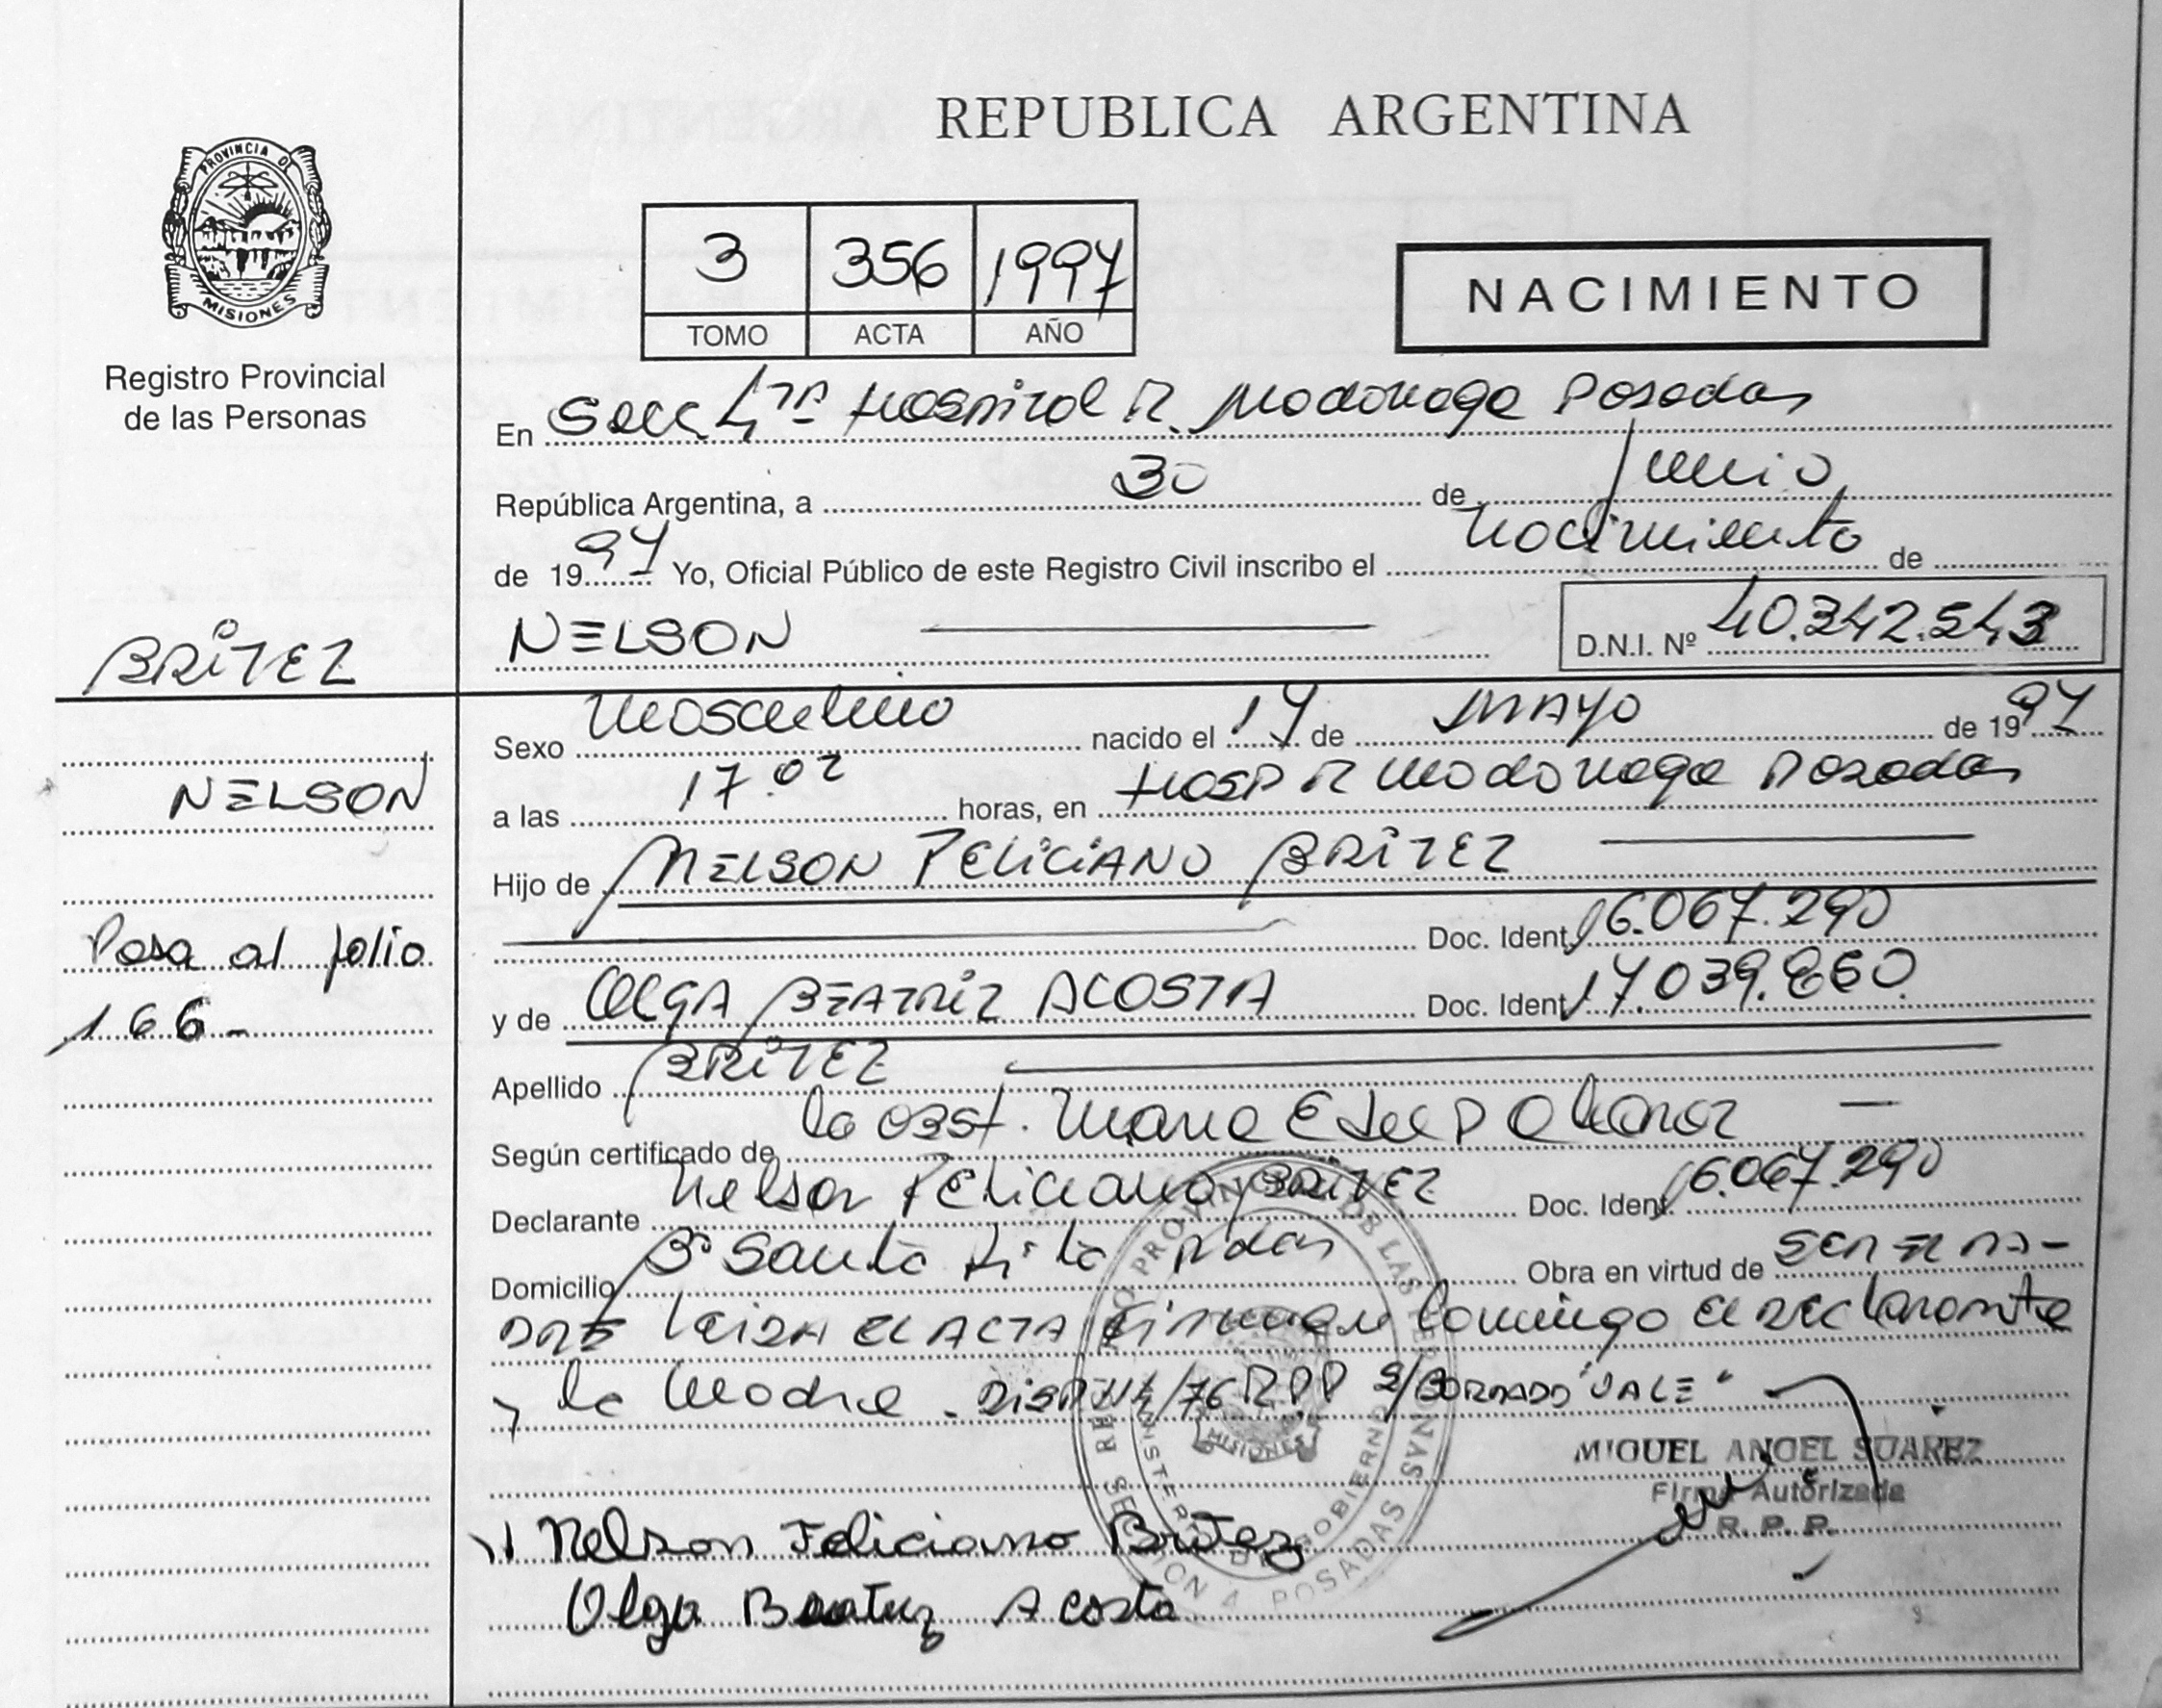 REPUBLICA ARGENTINA
PROVINCIA DE
MISIONES
Registro Provincial
de las Personas
3 356 1997
TOMO ACTA AÑO
NACIMIENTO
En Secc 4ta Hospital R. Madariaga Posadas
República Argentina, a 30 de Junio
de 1997 Yo, Oficial Público de este Registro Civil inscribo el nacimiento de
NELSON D.N.I. Nº 40.342.543
BRITEZ
NELSON
Pasa al folio
166-
Sexo Masculino nacido el 17 de MAYO de 1997
a las 17.02 horas, en HOSP R Madariaga Posadas
Hijo de NELSON FELICIANO BRITEZ
Doc. Ident. 16.067.290
y de OLGA BEATRIZ ACOSTA Doc. Ident. 17.039.860
Apellido BRITEZ
Según certificado de la Obst. Maria Ester
Declarante Nelson Feliciano BRITEZ Doc. Ident. 16.067.290
Domicilio Bº Santa Rita Pdas Obra en virtud de SER EL PA-
DRE Leida el ACTA firman conmigo el declarante
y la Madre - DISP Nº 4/76 RPP S/BORRADO "VALE"
MIGUEL ANGEL SUAREZ
Firma Autorizada
R. P. P.
Nelson Feliciano Britez
Olga Beatriz Acosta
REGISTRO PROVINCIAL DE LAS PERSONAS
MINISTERIO DE GOBIERNO
MISIONES
SECCION 4 POSADAS